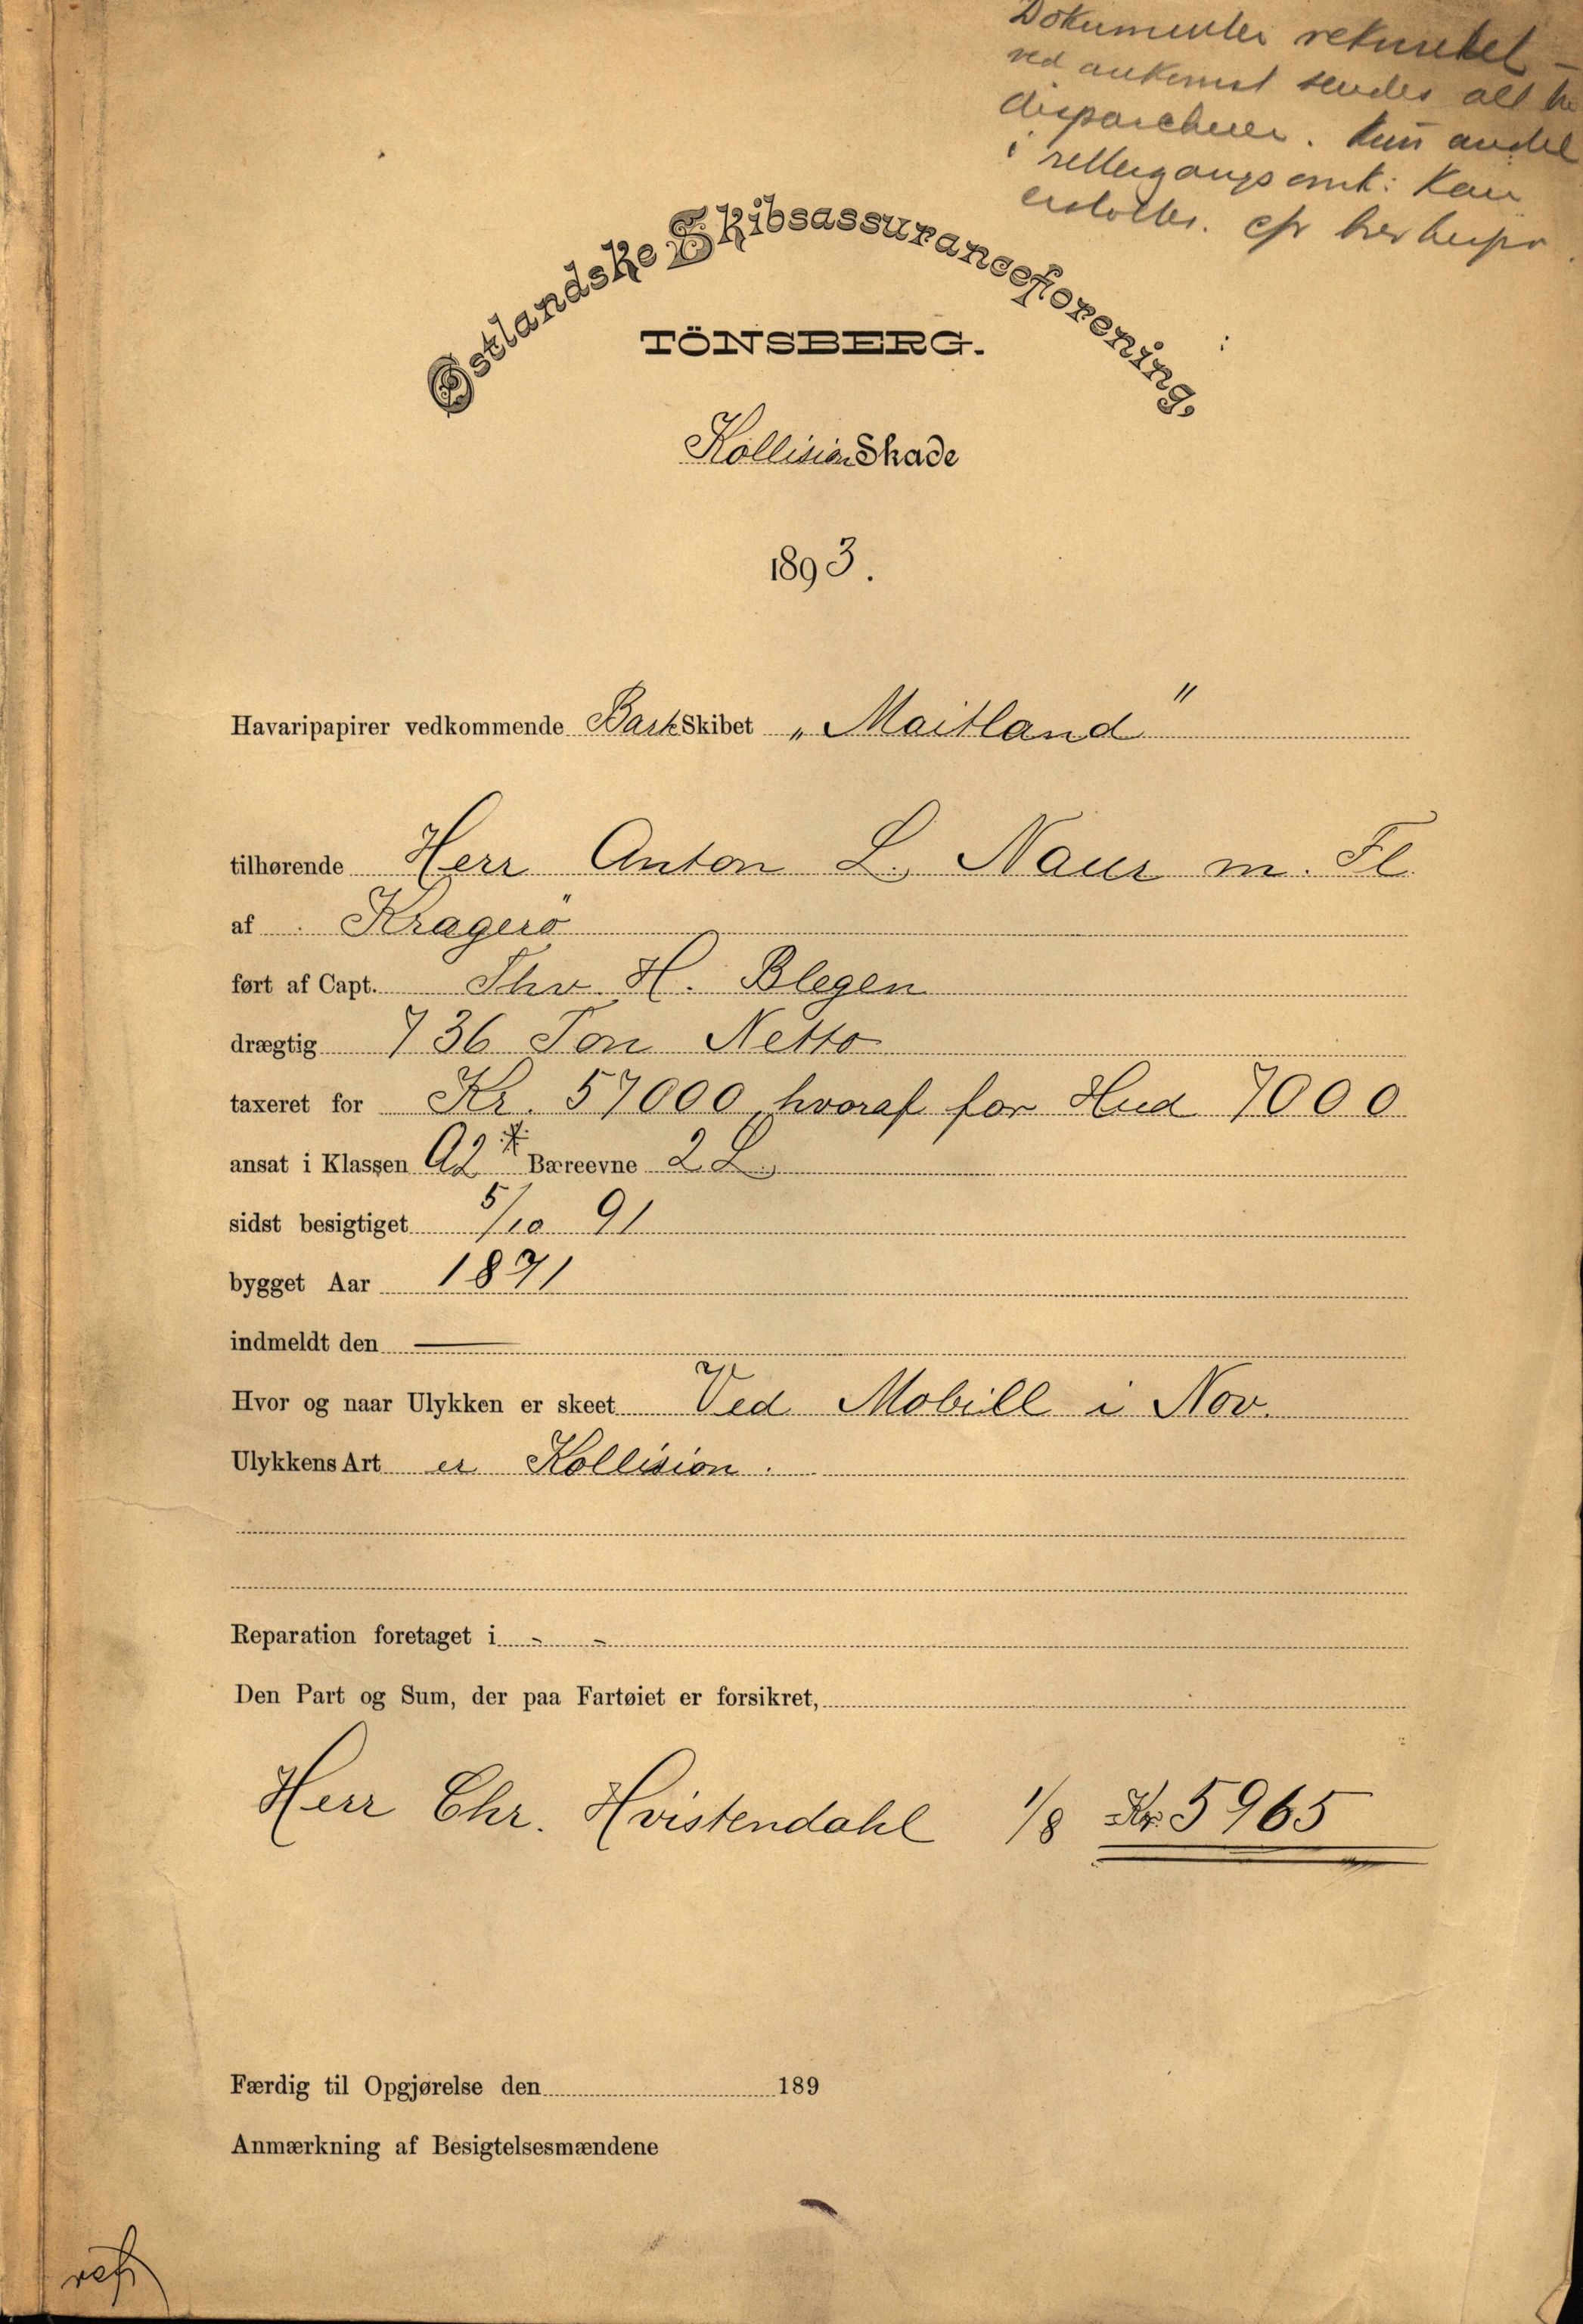 Dokumenter
ved ankomst sendes alt
. Kun andel
i rettergangsomk: kan
erstattes. cfr
Østlandske Skibsassuranceforening,
TÖNSBERG.
Kollision Skade
1893.
Havaripapirer vedkommende Bark Skibet „Maitland"
tilhørende Herr Anton L. Naur m. Fl.
af Kragerö
ført af Capt. Thv. H. Blegen
drægtig 736 Ton Netto
taxeret for Kr. 57000, hvoraf for Hud 7000
ansat i Klassen A2* Bæreevne 2 L.
sidst besigtiget 5/10 91
bygget Aar 1871
indmeldt den —
Hvor og naar Ulykken er skeet Ved Mobill i Nov.
Ulykkens Art er Kollision.
Reparation foretaget i - -
Den Part og Sum, der paa Fartøiet er forsikret,
Herr Chr. Hvistendahl 1/8 Kr. 5965
Færdig til Opgjørelse den 189
Anmærkning af Besigtelsesmændene